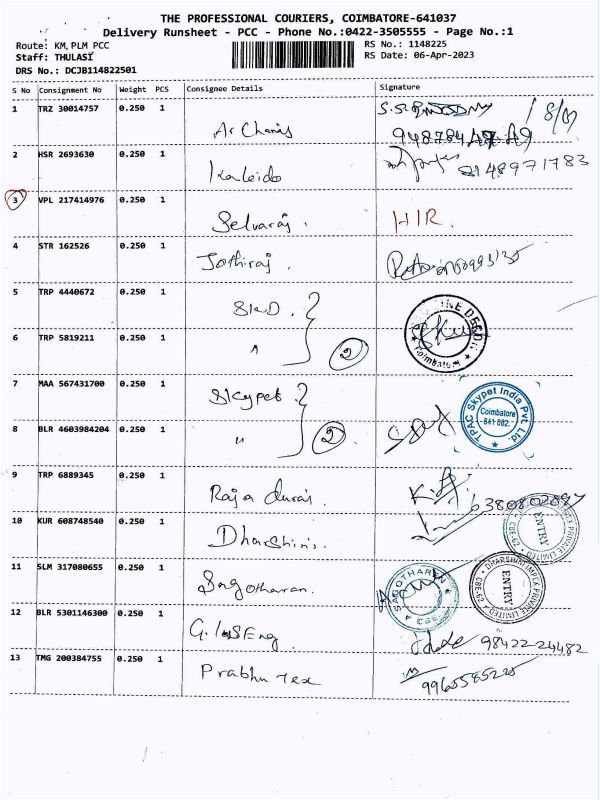 THE PROFESSIONAL COURIERS, COIMBATORE-641037
Delivery Runsheet - PCC - Phone No.:0422-3505555 - Page No.:1
Route: KM,PLM PCC
RS No.: 1148225
Staff: THULASI
RS Date: 06-Apr-2023
DRS No.: DCJB114822501
S No Consignment No Weight PCS Consignee Details Signature
1 TRZ 30014757 0.250 1
2 HSR 2693630 0.250 1 Kaleido
3 VPL 217414976 0.250 1 Selvaraj. HIR.
4 STR 162526 0.250 1 Jothiraj.
5 TRP 4440672 0.250 1 SKD.
6 TRP 5819211 0.250 1 " 2
7 MAA 567431700 0.250 1 Skypet
TPAC Skypet India Pvt. Ltd.
Coimbatore
-641 062.
8 BLR 4603984204 0.250 1 " 2
9 TRP 6889345 0.250 1 Raja durai.
10 KUR 608748540 0.250 1 Dharshini.
ENTRY
11 SLM 317080655 0.250 1
DHARSHINI IMPEX PRIVATE LIMITED
CBE-62
ENTRY
12 BLR 5301146300 0.250 1 98422-24482
13 TMG 200384755 0.250 1 Prabhu Tex